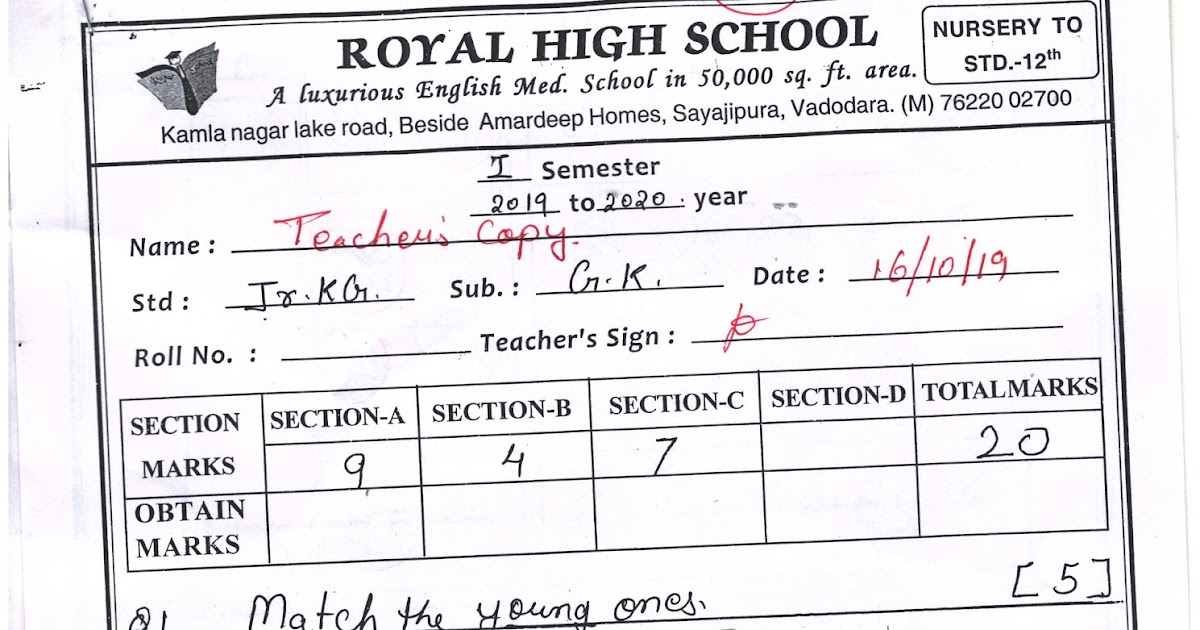 ROYAL HIGH SCHOOL
NURSERY TO
STD.-12th
A luxurious English Med. School in 50,000 sq. ft. area.
Kamla nagar lake road, Beside Amardeep Homes, Sayajipura, Vadodara. (M) 76220 02700
I Semester
2019 to 2020. year
Name : Teacher's Copy.
Std : Jr.KG. Sub. : G.K. Date : 16/10/19
Roll No. : Teacher's Sign :
SECTION SECTION-A SECTION-B SECTION-C SECTION-D TOTALMARKS
MARKS 9 4 7 20
OBTAIN
MARKS
Q1 Match the young ones. [5]